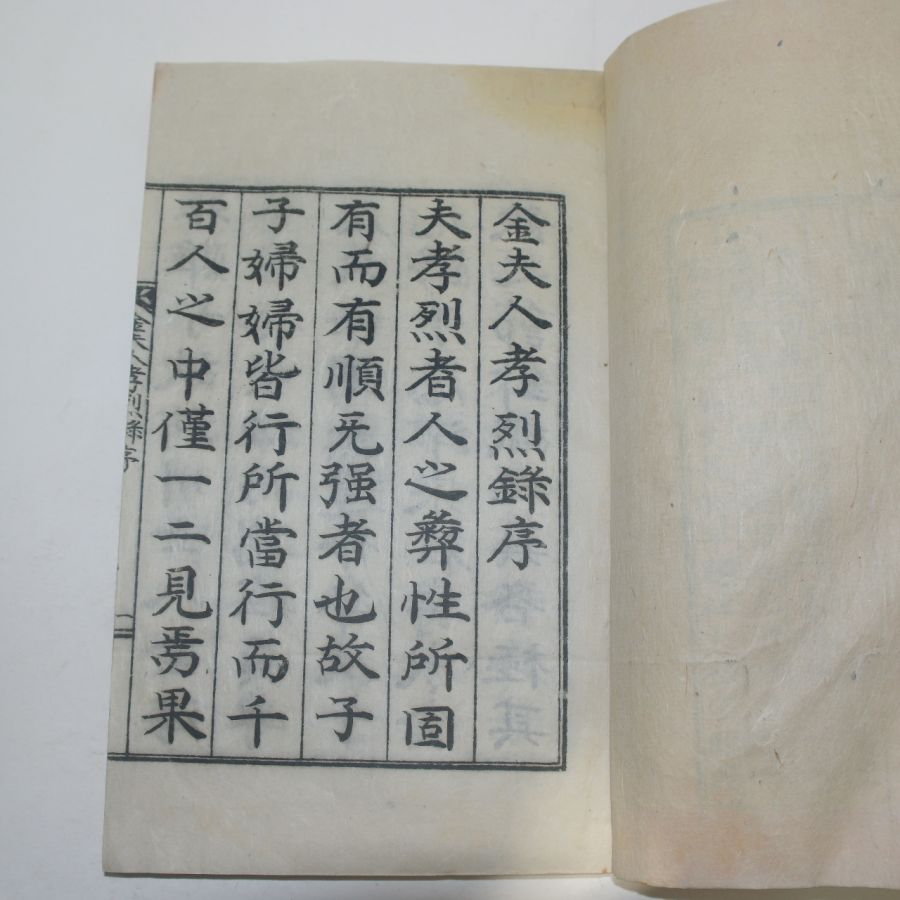 金夫人孝烈錄序
夫孝烈者人之彛性所固
有而有順无强者也故子
子婦婦皆行所當行而千
百人之中僅一二見焉果
金夫人孝烈錄序
一